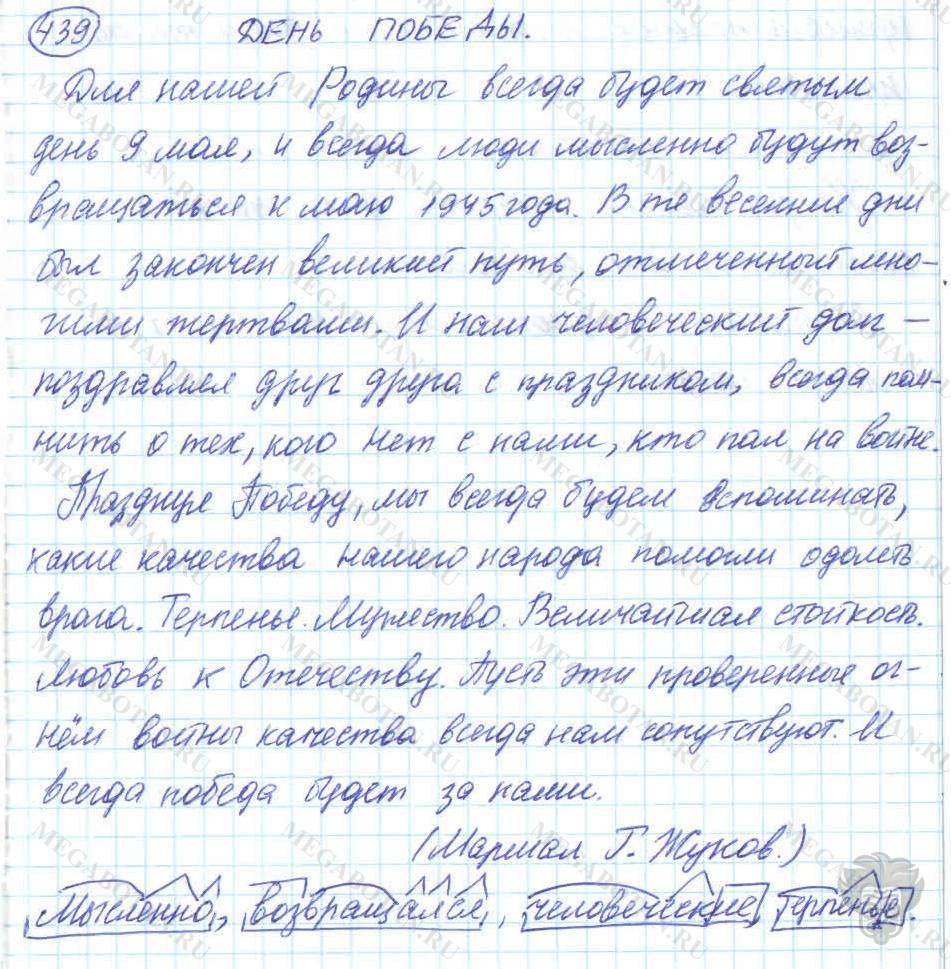 439 ДЕНЬ ПОБЕДЫ.
Для нашей Родины всегда будет святым
день 9 мая, и всегда люди мысленно будут воз-
вращаться к маю 1945 года. В те весенние дни
был закончен великий путь, отмеченный мно-
гими жертвами. И наш человеческий долг –
поздравляя друг друга с праздником, всегда пом-
нить о тех, кого нет с нами, кто пал на войне.
Празднуя Победу, мы всегда будем вспоминать,
какие качества нашего народа помогли одолеть
врага. Терпенье. Мужество. Величайшая стойкость.
Любовь к Отечеству. Пусть эти проверенные ог-
нём войны качества всегда нам сопутствуют. И
всегда победа будет за нами.
(Маршал Г. Жуков.)
Мысленно, возвращался, человеческие, терпенье.